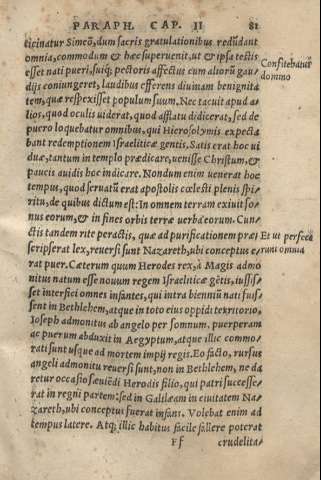 PARAPH. CAP. II 81
ticinatur Simeō, dum sacris gratulationibus redūdant
omnia, commodum & hæc superuenit, ut & ipsa testis
esset nati pueri, suiq; pectoris affectus cum alioru gau-
dijs coniungeret, laudibus efferens diuinam benignita
tem, quæ respexisset populum suum. Nec tacuit apud a-
lios, quod oculis uiderat, quod afflatu didicerat, sed de
puero loquebatur omnibus, qui Hierosolymis expecta
bant redemptionem Israeliticæ gentis, Satis erat hoc ui
duæ, tantum in templo prædicare, uenisse Christum, &
paucis auidis hoc indicare. Nondum enim uenerat hoc
tempus, quod seruatū erat apostolis cœlesti plenis spi-
ritu, de quibus dictum est: In omnem terram exiuit so-
nus eorum, & in fines orbis terræ uerba eorum. Cun-
ctis tandem rite peractis, quæ ad purificationem præ
scripserat lex, reuersi sunt Nazareth, ubi conceptus e-
rat puer. Cæterum quum Herodes rex, à Magis admo
nitus natum esse nouum regem Israeliticæ gētis, iussis-
set interfici omnes infantes, qui intra bienniū nati fuis
sent in Bethlehem, atque in toto eius oppidi territorio,
Ioseph admonitus ab angelo per somnum, puerperam
ac puerum abduxit in Aegyptum, atque illic commo-
rati sunt usque ad mortem impij regis. Eo facto, rursus
angeli admonitu reuersi sunt, non in Bethlehem, ne da
retur occasio sæuiēdi Herodis filio, qui patri successe-
rat in regni partem: sed in Galilæam in ciuitatem Na-
zareth, ubi conceptus fuerat infans. Volebat enim ad
tempus latere. Atq; illic habitus facile fallere poterat
Ff crudelita-
Confitebatur
domino
Et ut perfece
runt omnia